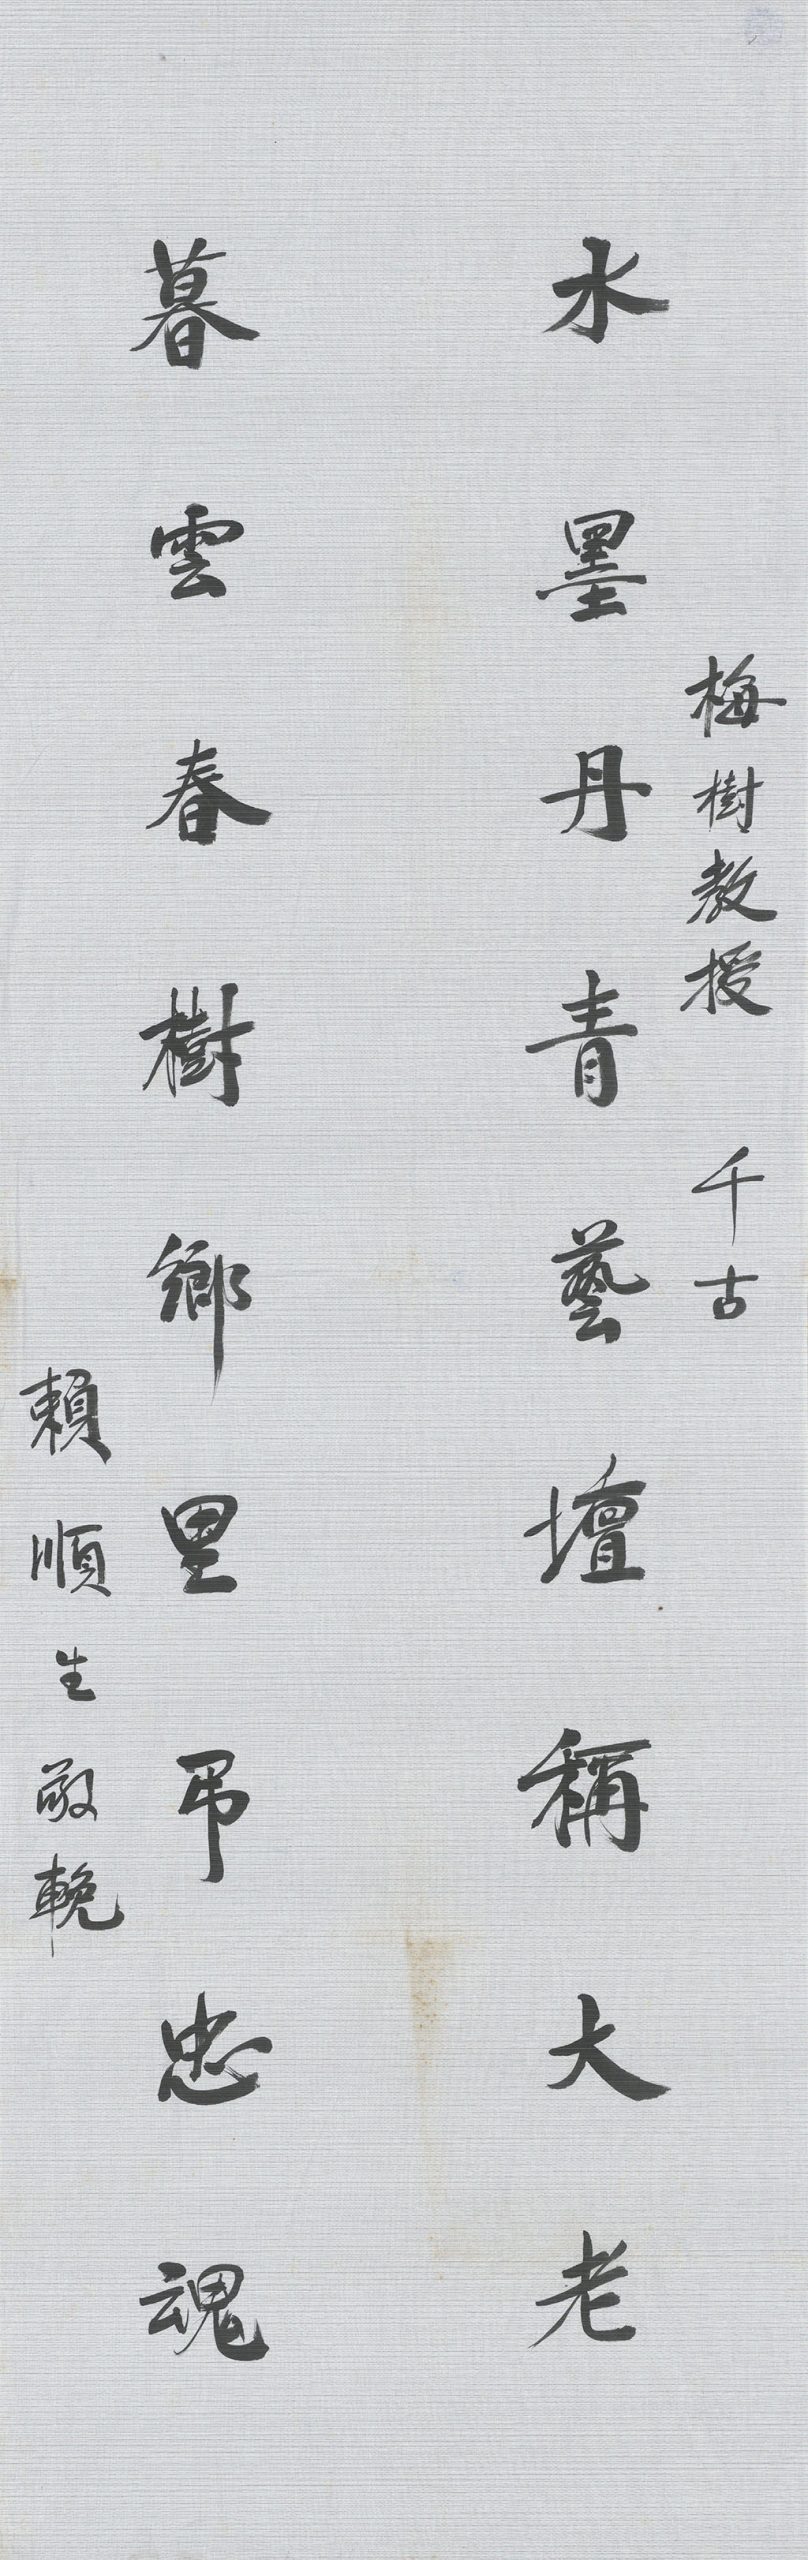 梅樹教授 千古
水墨丹青藝壇稱大老
暮雲春樹鄉里弔忠魂
賴順生敬輓